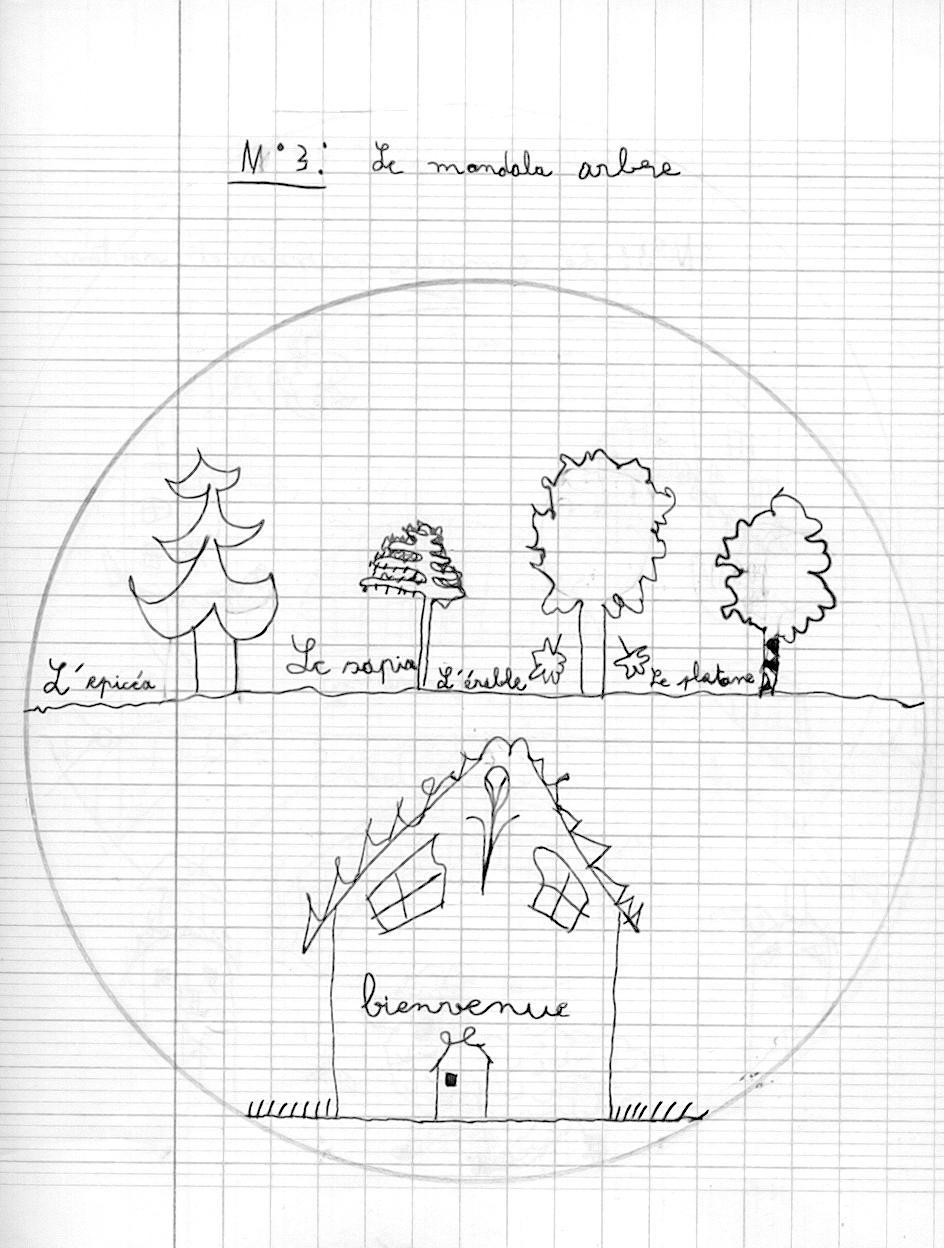 N°3: Le mandala arbre
L'épicéa
Le sapin
L'érable
Le platane
bienvenue